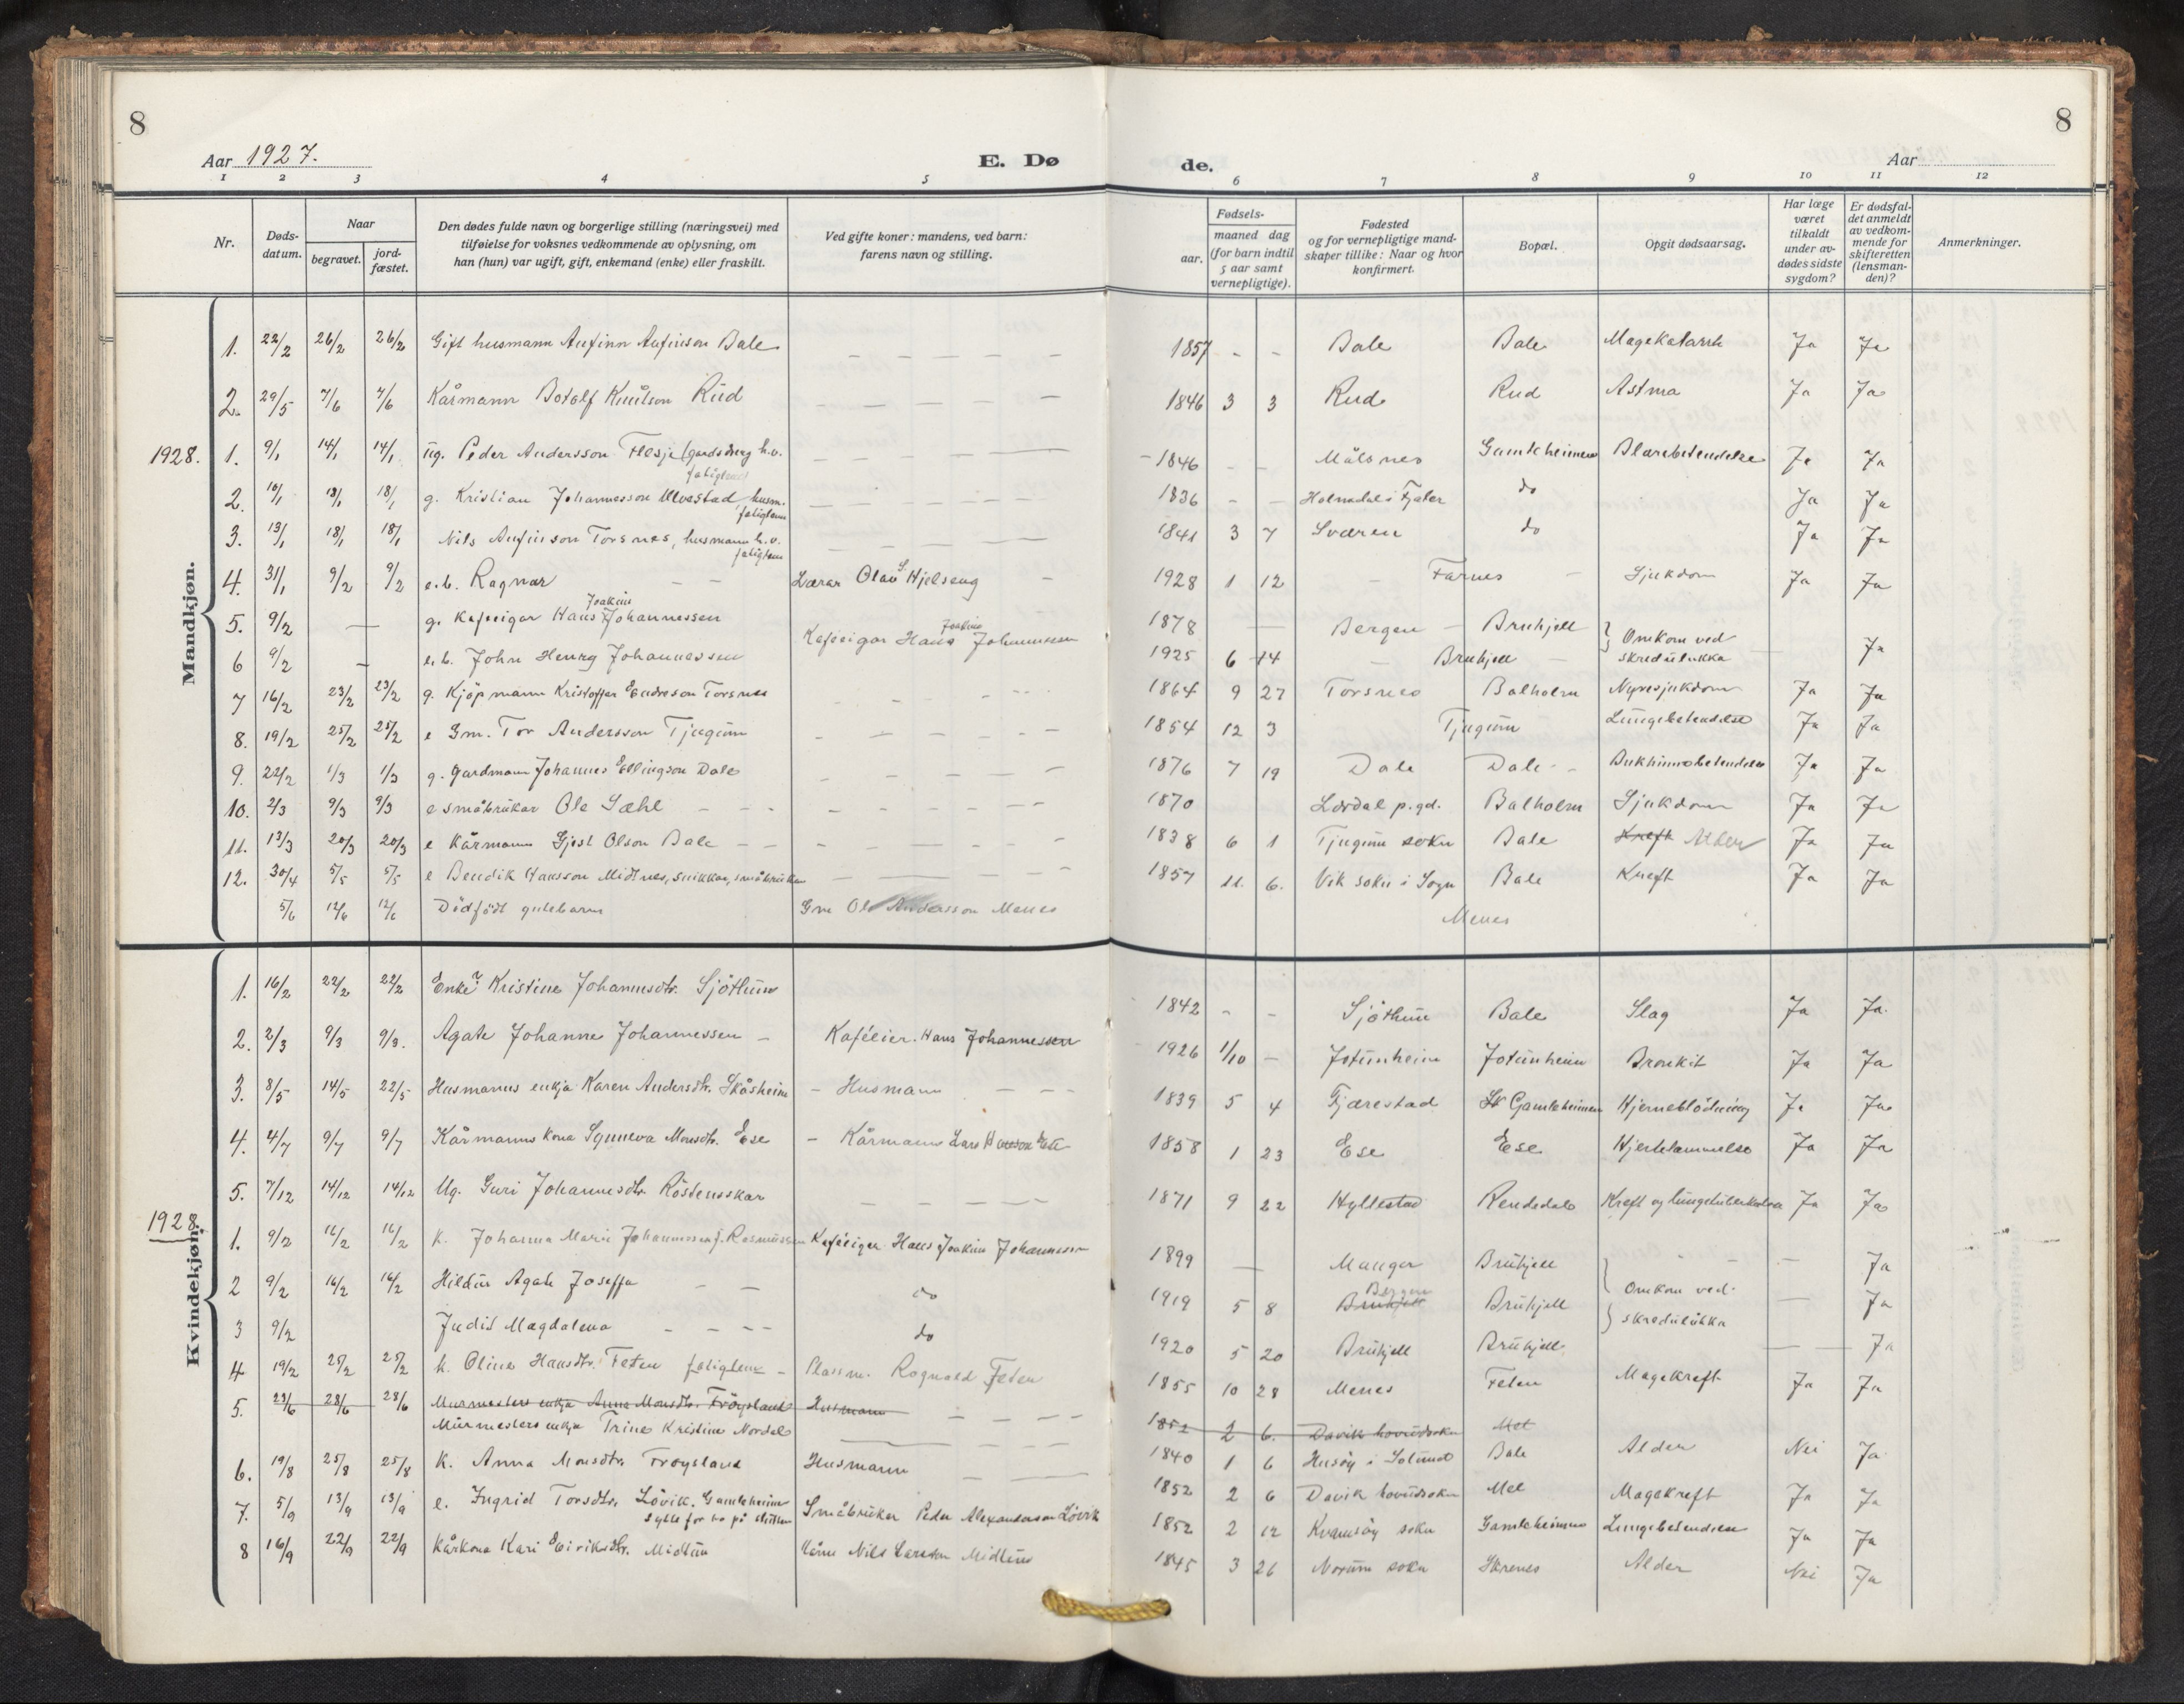 8
8
Aar 1927.
E. Dø
de.
Aar
1 2 3 4 5 6 7 8 9 10 11 12
Nr.
Døds-
datum.
Naar
begravet.
jord-
fæstet.
Den dødes fulde navn og borgerlige stilling (næringsvei) med
tilføielse for voksnes vedkommende av oplysning, om
han (hun) var ugift, gift, enkemand (enke) eller fraskilt.
Ved gifte koner: mandens, ved barn:
farens navn og stilling.
Fødsels-
aar.
maaned dag
(for barn indtil
5 aar samt
vernepligtige).
Fødested
og for vernepligtige mand-
skaper tillike: Naar og hvor
konfirmert.
Bopæl.
Opgit dødsaarsag.
Har læge
været
tilkaldt
under av-
dødes sidste
sygdom?
Er dødsfal-
det anmeldt
av vedkom-
mende for
skifteretten
(lensman-
den)?
Anmerkninger.
Mandkjøn.
1. 22/2 26/2 26/2 Gift husmann Anfinn Anfinson Bale — — — — — 1857 - - Bale Bale Magekatarrh Ja Ja
2. 29/5 7/6 7/6 Kårmann Botolf Knutson Rud — — — — — 1846 3 3 Rud Rud Astma Ja Ja
1928. 1. 9/1 14/1 14/1 ug. Peder Andersson Flesje (gardsdreng h.v.
fatiglem)
1846 - - Målsnes Gamleheimen Blærebetendelse Ja Ja
2. 10/1 18/1 18/1 g. Kristian Johannesson Ulvestad, husm.
fatiglem
1836 - - Holmedal i Fjaler do Ja Ja
3. 13/1 18/1 18/1 Nils Anfinson Torsnes, husmann h.v.
fatiglem
1841 3 7 Sværen do Ja Ja
4. 31/1 9/2 9/2 e.b. Ragnar — — Lærar Olav S. Hjelseng - 1928 1 12 - Farnes - Sjukdom Ja Ja
5. 9/2 — g. Kafeeigar Hans Joakim Johannessen 1878 — Bergen - Bruhjell } Omkom ved
6 9/2 - e.b. John Henry Johannessen Kaféeigar Hans Joakim Johannessen 1925 6 14 - Bruhjell - skredulukka — Ja
7 16/2 23/2 23/2 g. Kjöpmann Kristoffer Endreson Torsnes 1864 9 27 Torsnes Balholm Nyresjukdom Ja Ja
8. 19/2 25/2 25/2 e Gm. Tor Andersson Tjugum 1854 12 3 Tjugum Lungebetendelse Ja Ja
9. 22/2 1/3 1/3 g. gardmann Johannes Ellingson Dale 1876 7 19 Dale Dale - Bukhinnebetendelse Ja Ja
10. 2/3 9/3 9/3 e småbrukar Ole Sæhl 1870 Lærdal p.gd. Balholm Sjukdom Ja Ja
11. 13/3 20/3 20/3 e Kårmann Gjest Olson Bale 1838 6 1 Tjugum sokn Bale Kreft Alder Ja Ja
12. 30/4 5/5 5/5 e Bendik Hansson Midtnes, snikkar, småbrukar 1857 11. 6. Vik sokn i Sogn Bale Kreft Ja Ja
5/6 12/6 12/6 Dödfödt gutebarn Gm Ol Andersson Menes Menes
Kvindekjøn.
1. 16/2 22/2 22/2 Enke Kristine Johannesdtr. Sjöthun 1842 - - Sjöthun Bale Slag Ja Ja.
2. 2/3 9/3 9/3. Agate Johanne Johannessen - Kaféeier. Hans Johannessen 1926 1/10 - Jotunheim Jotunheim Bronkit Ja Ja
3. 8/5 14/5 22/5 Husmanns enkja Karen Andersdtr. Skåsheim - Husmann — — 1839 5 4 Fjærestad Gamleheimen Hjerneblödning Ja Ja
4. 4/7 9/7 9/7 Kårmanns kona Synneva Monsdtr. Ese - Kårmann Lars Hansson Ese 1858 1 23 Ese Ese Hjertelammelse Ja Ja
5. 7/12 14/12 14/12 Ug. Guri Johannesdtr. Röstensskar — — — — 1871 9 22 Hyllestad Rendedale Kreft og lungetuberkulose Ja Ja
1928. 1. 9/2 16/2 16/2 k. Johanna Marie Johannessen f. Rasmussen Kaféeigar Hans Joakim Johannessen 1899 — Manger Bruhjell — Ja
2 9/2 16/2 16/2 Hildur Agate Joseffa — — do 1919 5 8 Bruhjell Bergen Bruhjell } Omkom ved — Ja
3 9/2 Judit Magdalena - - -- do 1920 5 20 Bruhjell Bruhjell } skredulukka — Ja
4 19/2 25/2 25/2 k. Oline Hansdtr. Feten fatiglem - Plassm. Rognald Feten 1855 10 28 Menes Feten Magekreft Ja Ja
5. 23/6 28/6 28/6 Murmesters enkja Anna Monsdtr. Fröysland Husmann 1852 2 6. Davik hovudsokn Mel
Murmesters enkja Trine Kristine Nordal 1840 1 6 Husöy i Solund Bale Alder Nei Ja
6. 19/8 25/8 25/8 K. Anna Monsdtr. Fröysland Husmann 1852 2 6 Davik hovudsokn Mel Magekreft Ja Ja
7. 5/9 13/9 13/9 e. Ingrid Torsdtr. Lövik. Gamleheim Småbruker Peder Alexanderson Lövik 1852 2 12 Kvamsöy sokn Gamleheimen Lungebetendelse Ja Ja
8 16/9 22/9 22/9 Kårkona Kari Eiriksdtr. Midtun Nils Larsson Midtun 1845 3 26 Norum sokn Skrenes Alder Nei Ja